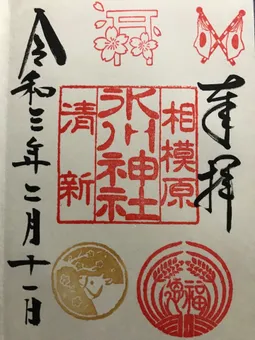 奉拝
相模原
氷川神社
清新
令和三年二月十一日
福